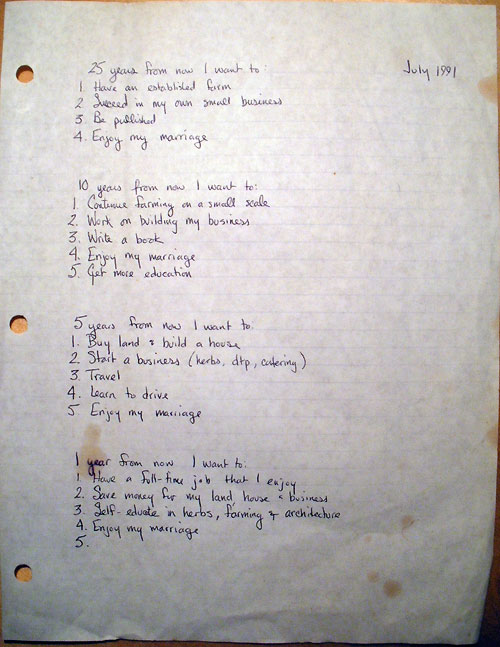 July 1991
25 years from now I want to:
1. Have an established farm
2. Succeed in my own small business
3. Be published
4. Enjoy my marriage
10 years from now I want to:
1. Continue farming on a small scale
2. Work on building my business
3. Write a book
4. Enjoy my marriage
5. Get more education
5 years from now I want to:
1. Buy land & build a house
2. Start a business (herbs, dtp, catering)
3. Travel
4. Learn to drive
5. Enjoy my marriage
1 year from now I want to:
1. Have a full-time job that I enjoy
2. Save money for my land house & business
3. Self-educate in herbs, farming & architecture
4. Enjoy my marriage
5.